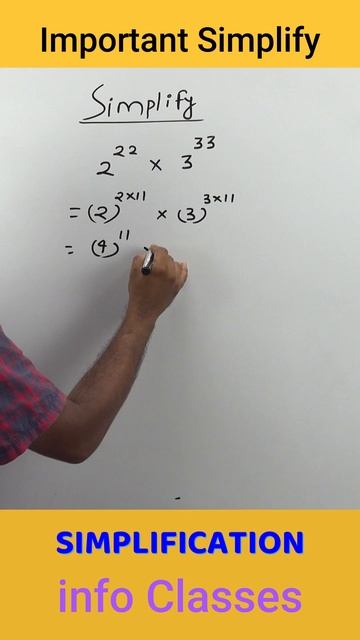 Important Simplify
Simplify
2^22 × 3^33
= (2)^2×11 × (3)^3×11
= (4)^11
SIMPLIFICATION
info Classes